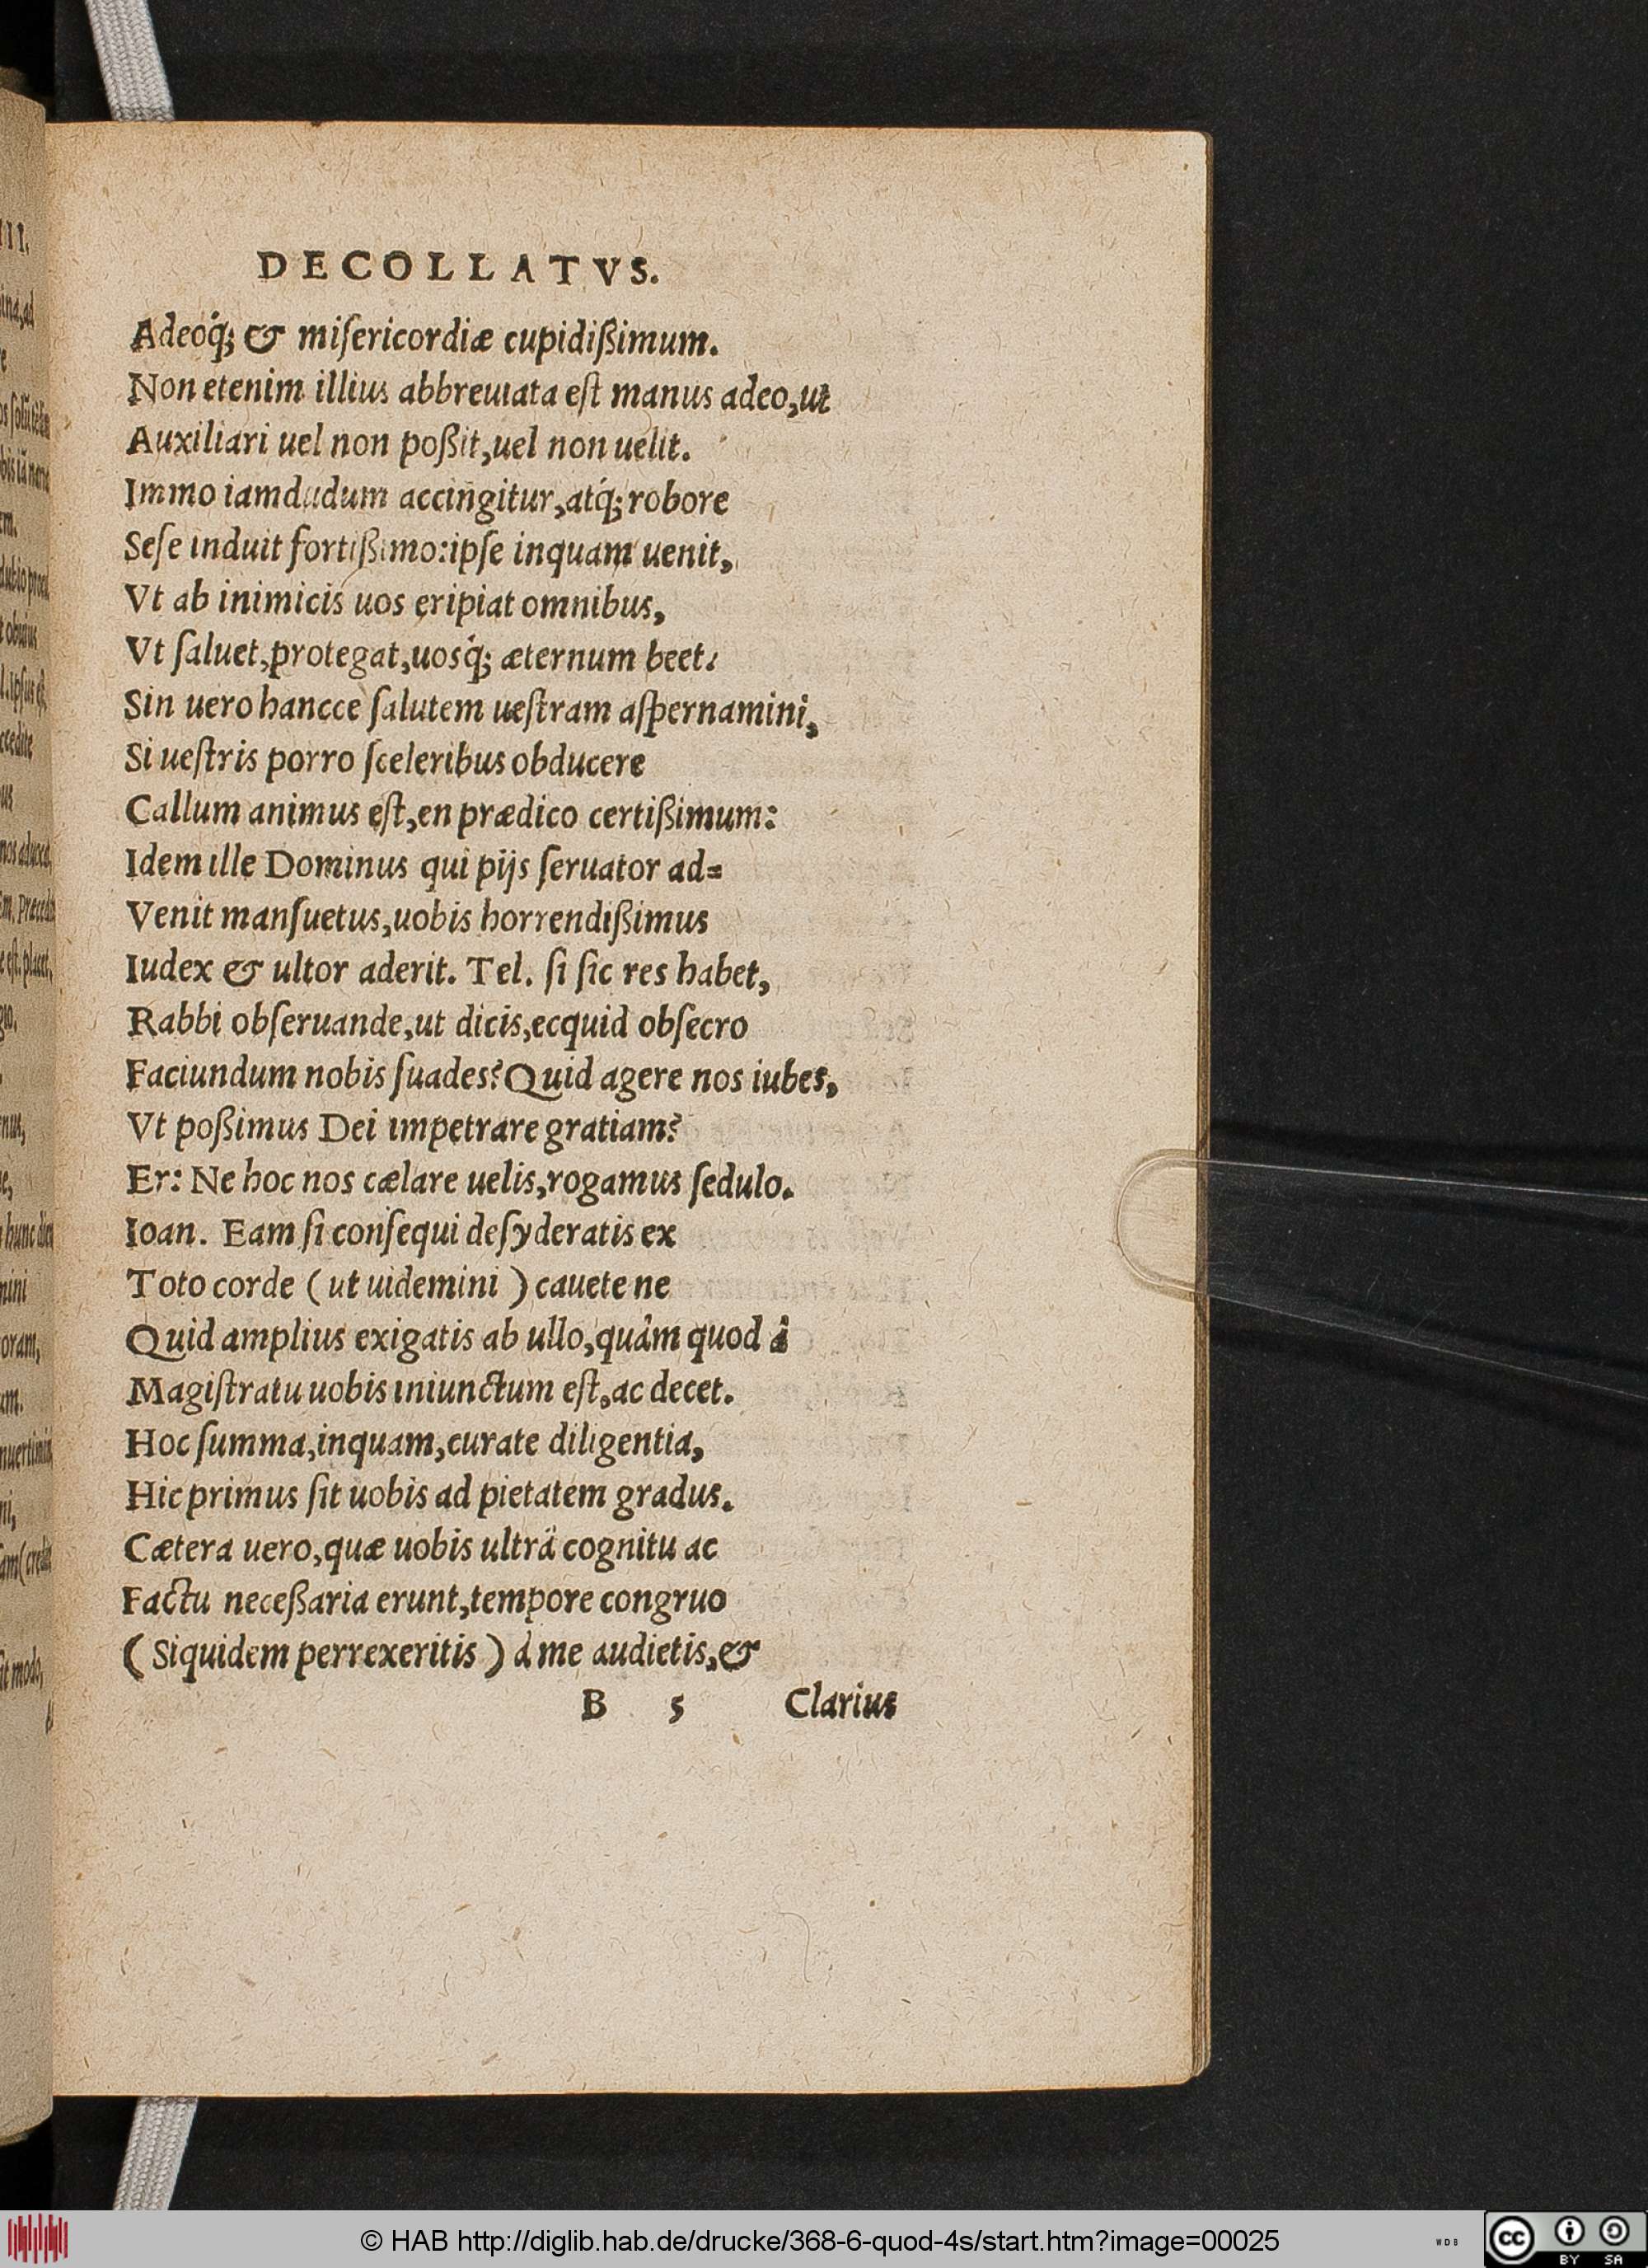 DECOLLATVS.
Adeoq́; & miſericordiæ cupidißimum.
Non etenim illius abbreuiata eſt manus adeo,ut
Auxiliari uel non poßit,uel non uelit.
Immo iamdudum accingitur,atq́; robore
Seſe induit fortißimo:ipſe inquam uenit,
Vt ab inimicis uos eripiat omnibus,
Vt ſaluet,protegat,uosq́; æternum beet.
Sin uero hancce ſalutem ueſtram aſpernamini,
Si ueſtris porro ſceleribus obducere
Callum animus eſt,en prædico certißimum:
Idem ille Dominus qui pijs ſeruator ad=
Venit manſuetus,uobis horrendißimus
Iudex & ultor aderit. Tel. ſi ſic res habet,
Rabbi obſeruande,ut dicis,ecquid obſecro
Faciundum nobis ſuades? Quid agere nos iubes,
Vt poßimus Dei impetrare gratiam?
Er: Ne hoc nos cælare uelis,rogamus ſedulo.
Ioan. Eam ſi conſequi deſyderatis ex
Toto corde ( ut uidemini ) cauete ne
Quid amplius exigatis ab ullo,quàm quod à
Magiſtratu uobis iniunctum eſt,ac decet.
Hoc ſumma,inquam,curate diligentia,
Hic primus ſit uobis ad pietatem gradus.
Cætera uero,quæ uobis ultrà cognitu ac
Factu neceßaria erunt,tempore congruo
( Siquidem perrexeritis ) à me audietis,&
B 5 Clarius
© HAB http://diglib.hab.de/drucke/368-6-quod-4s/start.htm?image=00025
WDB
cc BY SA